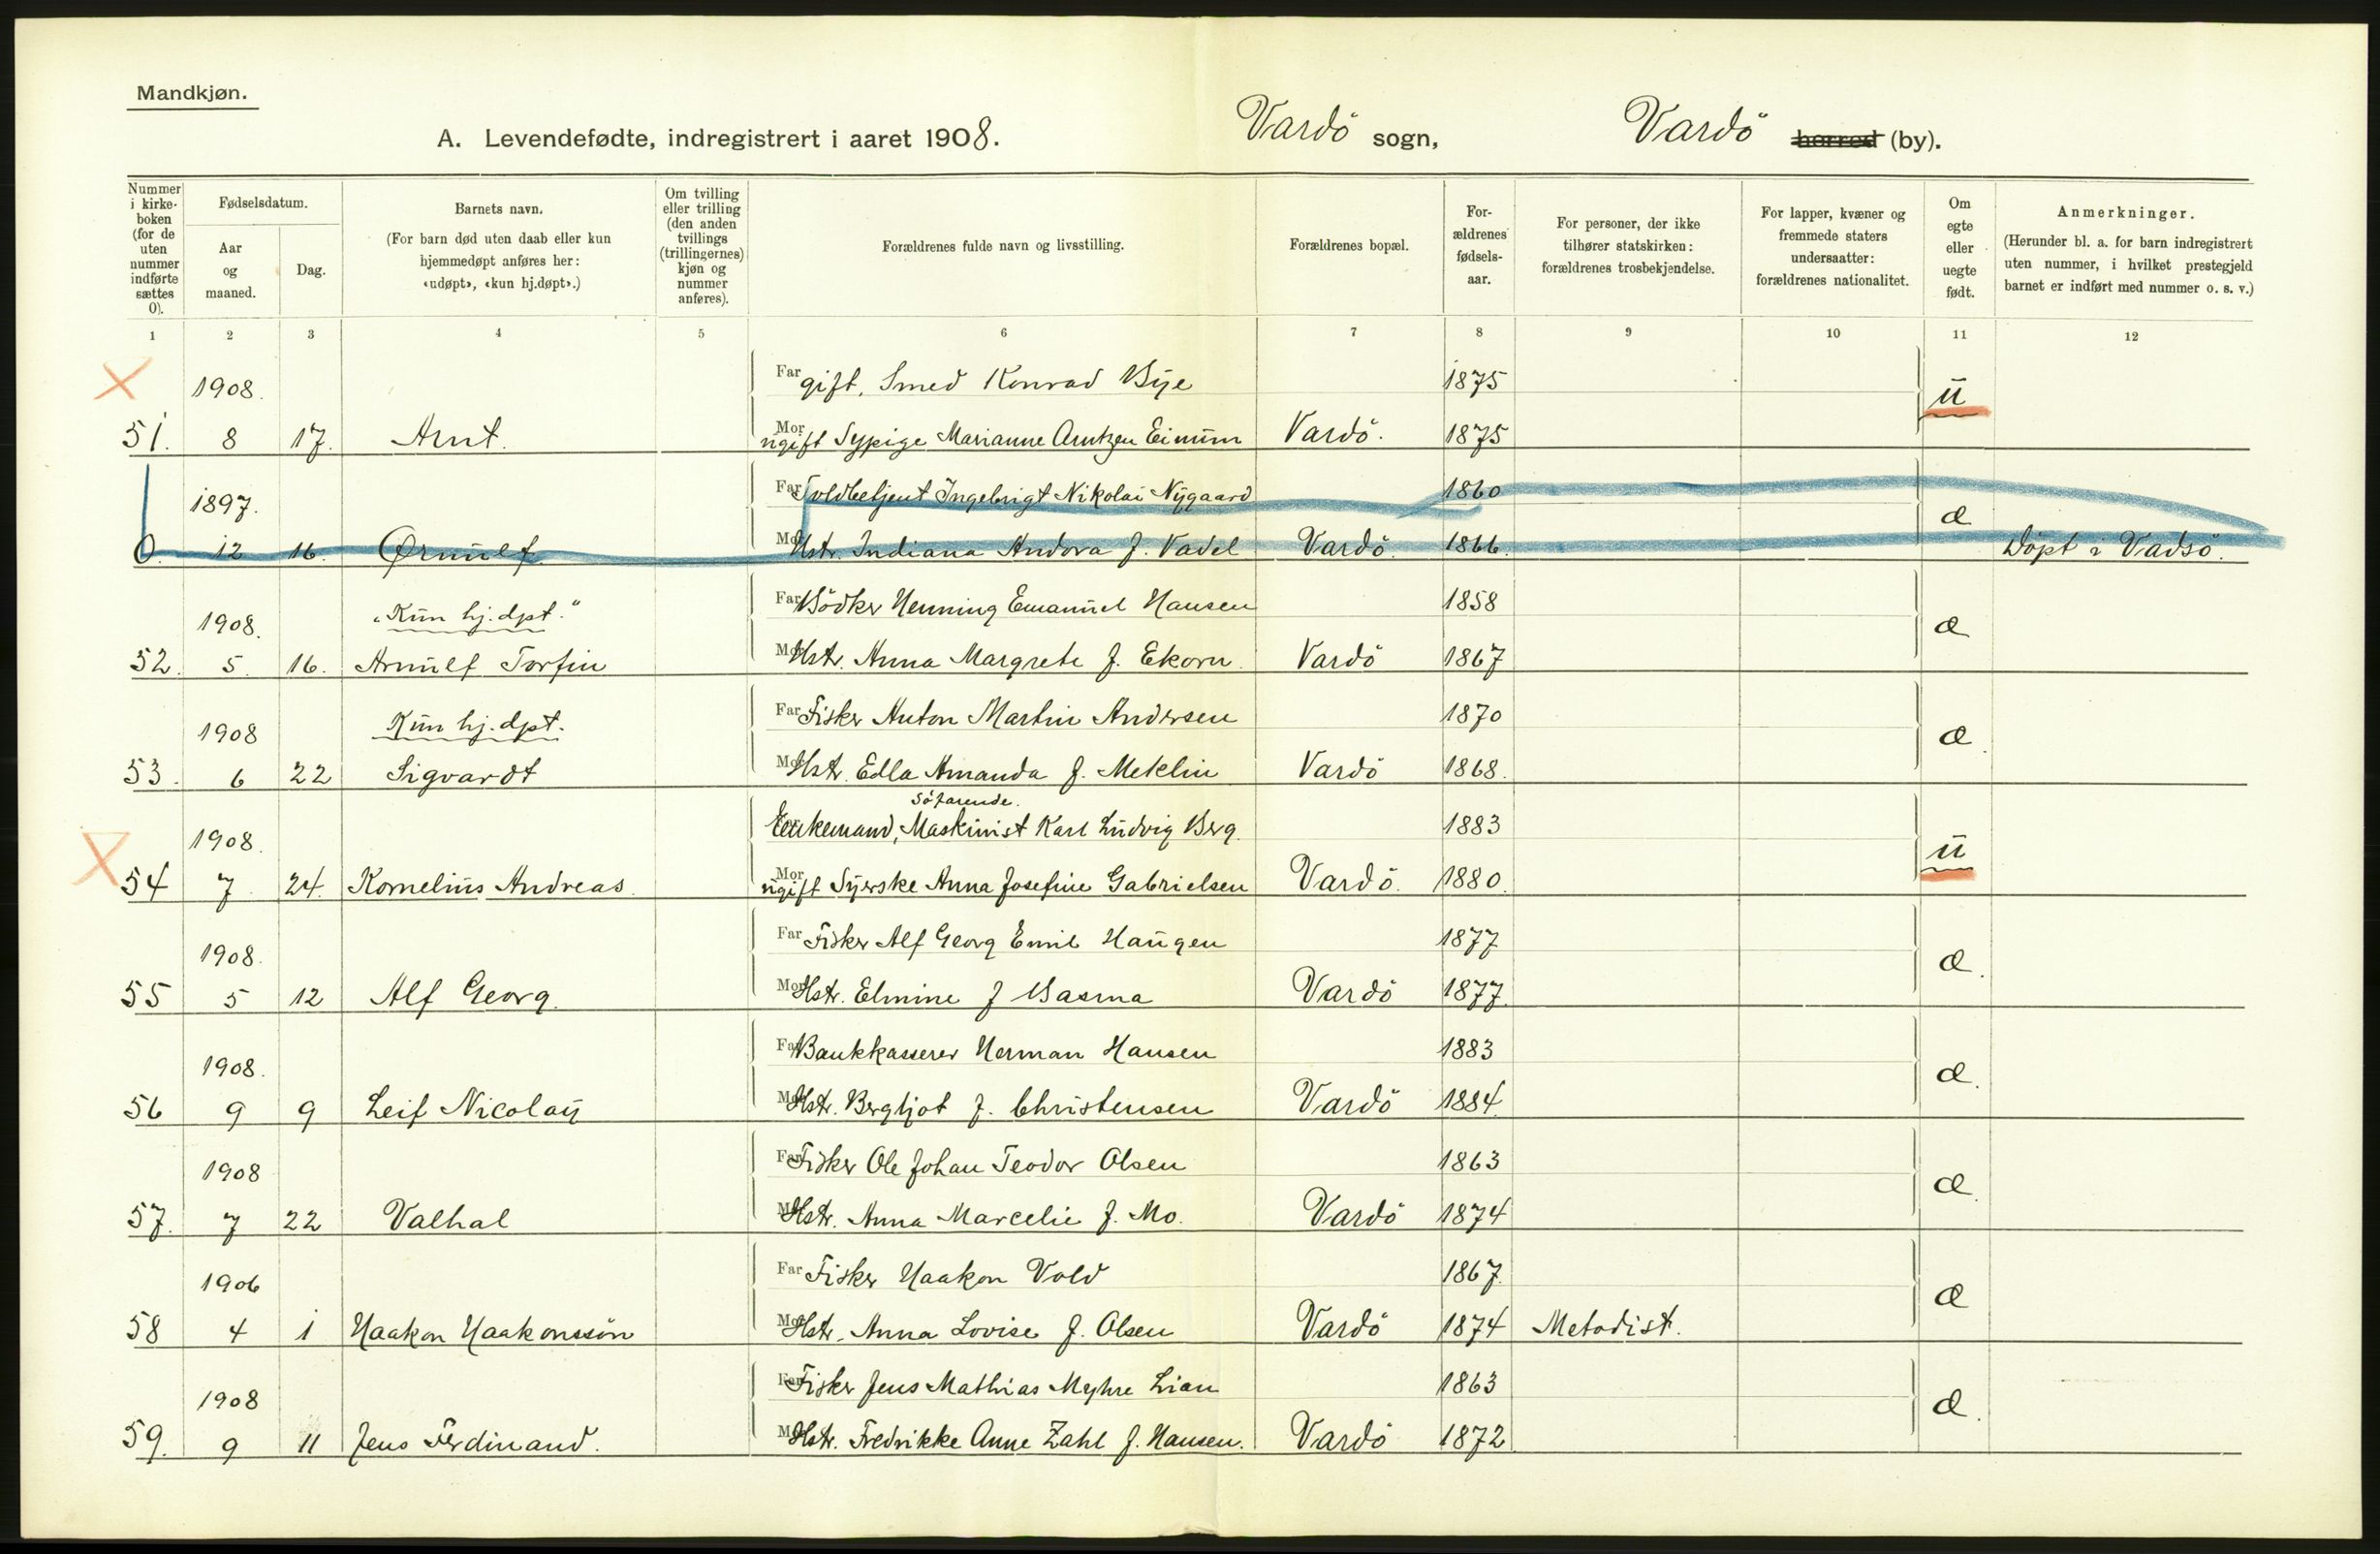 Mandkjøn.
A. Levendefødte, indregistrert i aaret 1908. Vardö sogn, Vardö herred (by).
Nummer i kirkeboken (for de uten nummer indførte sættes 0).
Fødselsdatum.
Aar og maaned.
Dag.
Barnets navn.
(For barn død uten daab eller kun hjemmedøpt anføres her: «udøpt», «kun hj.døpt».)
Om tvilling eller trilling (den anden tvillings (trillingernes) kjøn og nummer anføres).
Forældrenes fulde navn og livsstilling.
Forældrenes bopæl.
Forældrenes fødselsaar.
For personer, der ikke tilhører statskirken: forældrenes trosbekjendelse.
For lapper, kvæner og fremmede staters undersaatter: forældrenes nationalitet.
Om egte eller uegte født.
Anmerkninger.
(Herunder bl. a. for barn indregistrert uten nummer, i hvilket prestegjeld barnet er indført med nummer o. s. v.)
1 2 3 4 5 6 7 8 9 10 11 12
1908. Far gift, Smed Konrad Bye 1875 u
51. 8 17. Arnt. Mor ugift Sypige Marianne Arntzen Einum Vardö. 1875
1897. Far Toldbetjent Ingebrigt Nikolai Nygaard 1860 æ
0. 12 16. Ørnulf Mor Hstr. Indiana Andora f. Vadel Vardö. 1866. Döpt i Vadsö.
1908. "Kun hj. dpt." Far Bödker Henning Emanuel Hansen 1858 æ
52. 5. 16. Arnulf Torfin Mor Hstr. Anna Margrete f. Ekorn. Vardö 1867
1908 Kun hj. dpt. Far Fisker Anton Martin Andersen 1870 æ.
53. 6 22 Sigvardt Mor Hstr. Edla Amanda f. Meklin Vardö 1868.
söfarende.
1908. Far Enkemand, Maskinist Karl Ludvig Berg. 1883 u
54 7 24. Kornelius Andreas. Mor ugift Syerske Anna Josefine Gabrielsen Vardö. 1880.
1908. Far Fisker Alf Georg Emil Haugen 1877 æ.
55 5 12 Alf Georg. Mor Hstr. Elmine f Basma Vardö 1877.
1908. Far Bankkasserer Herman Hansen 1883 æ.
56 9 9 Leif Nicolay Mor Hstr. Bergljot f. Christensen Vardö 1884.
1908 Far Fisker Ole Johan Teodor Olsen 1863 æ.
57. 7 22 Valhal Mor Hstr. Anna Marcelie f. Mo. Vardö 1874
1906 Far Fisker Haakon Vold 1867. æ
58 4 1 Haakon Haakonssön Mor Hstr. Anna Lovise f. Olsen Vardö 1874 Metodist.
1908 Far Fisker Jens Mathias Myhre Lian 1863 æ.
59. 9 11 Jens Ferdinand. Mor Hstr. Fredrikke Anne Zahl f. Hansen. Vardö 1872